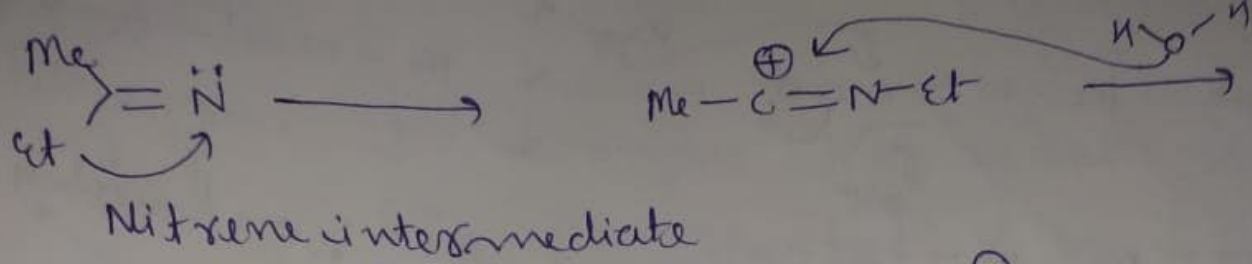 Me
Et
=N̈
Me - C = N - Et
⊕
H O H
Nitrene intermediate